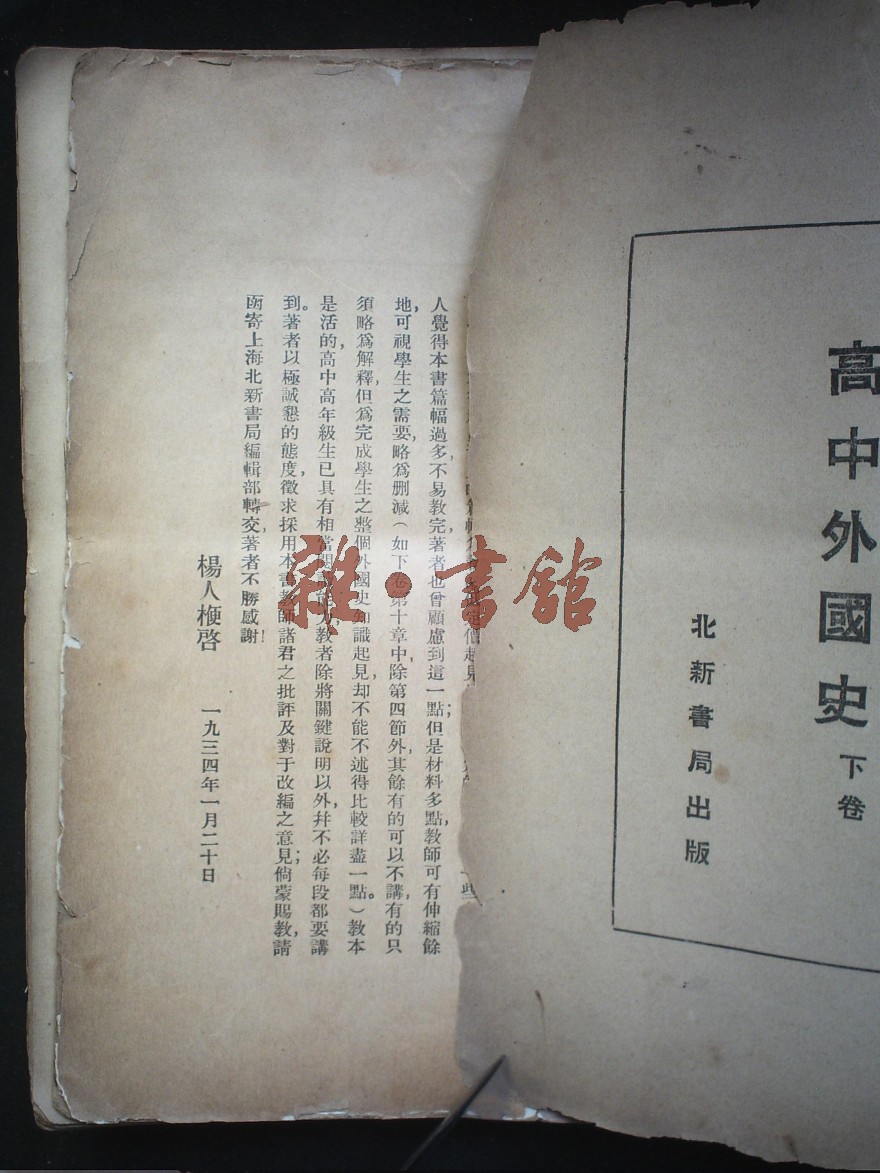 高中外國史
下卷
北新書局出版
人覺得本書篇幅過多，不易教完，著者也曾顧慮到這一點；但是材料多點，教師可有伸縮餘
地，可視學生之需要，略爲删減（如下卷第十章中，除第四節外，其餘有的可以不講，有的只
須略爲解釋，但爲完成學生之整個外國史知識起見，却不能不述得比較詳盡一點。）教本
是活的，高中高年級生已具有相當閱讀能力，教者除將關鍵說明以外，幷不必每段都要講
到。著者以極誠懇的態度，徵求採用本書教師諸君之批評及對于改編之意見；倘蒙賜教，請
函寄上海北新書局編輯部轉交，著者不勝感謝！
楊人楩啓
一九三四年一月二十日
雜·書館